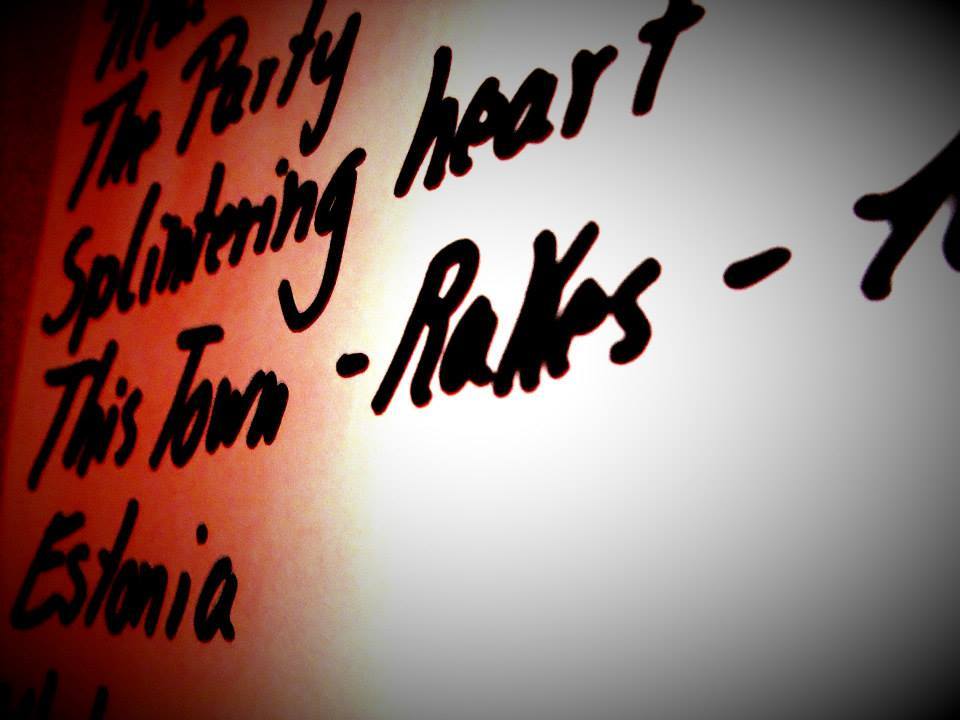 The Party
Splintering heart
This Town - Rakes -
Estonia